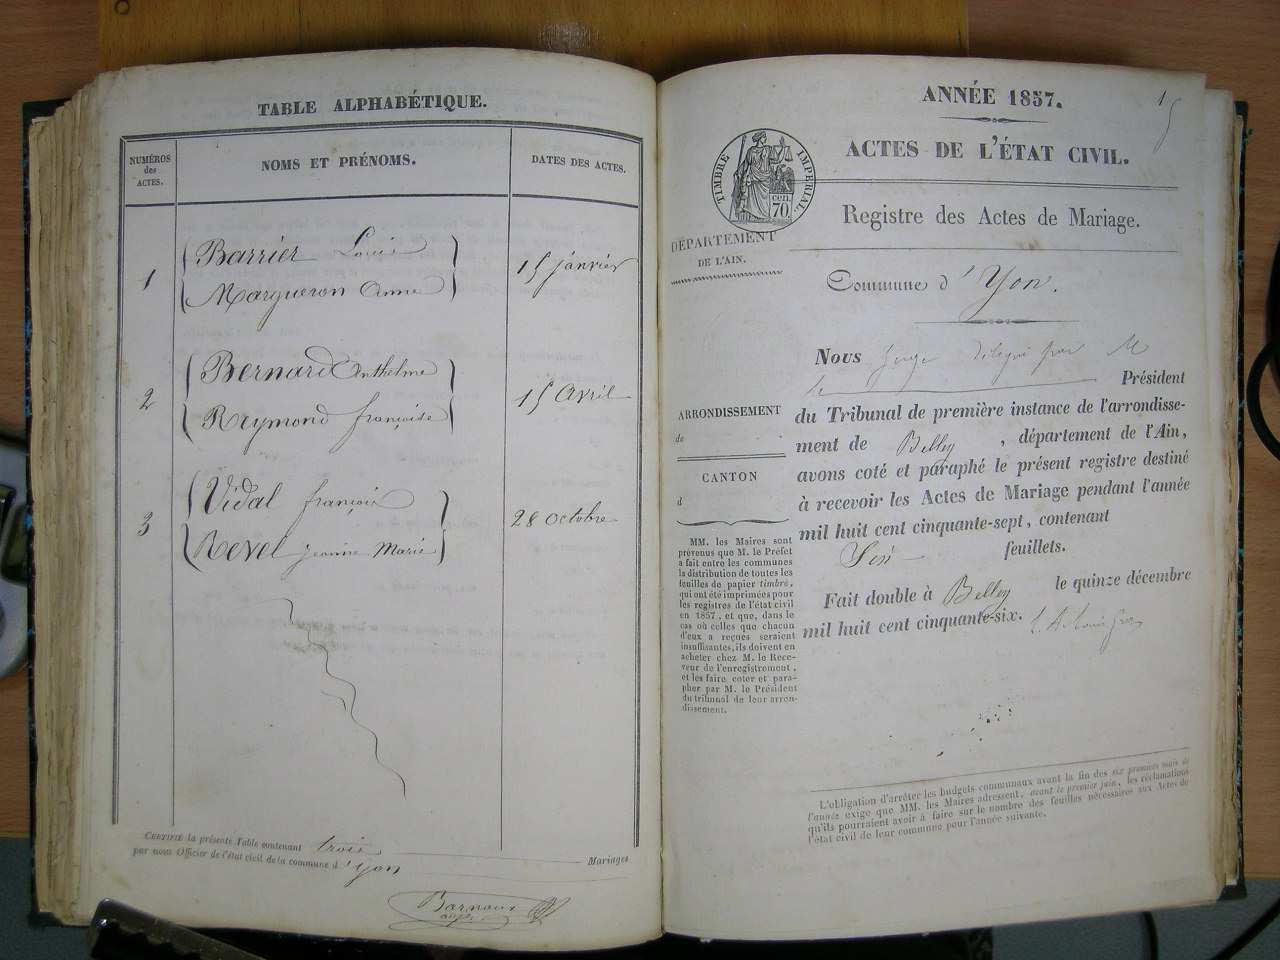 TABLE ALPHABÉTIQUE.
NUMÉROS
des
ACTES.
NOMS ET PRÉNOMS.
DATES DES ACTES.
1
Barrier Louis
Margueron Anne
15 janvier
2
Bernard Anthelme
Reymond françoise
15 Avril
3
Vidal françois
Revel jeanne Marie
28 octobre
CERTIFIÉ la présente Table contenant trois Mariages
par nous Officier de l'état civil de la commune d'Yon
ANNÉE 1857.
1
ACTES DE L'ÉTAT CIVIL.
TIMBRE IMPÉRIAL
cen.
70
Registre des Actes de Mariage.
DÉPARTEMENT
DE L'AIN.
Commune d'Yon.
Nous Juge délégué par M
le Président
du Tribunal de première instance de l'arrondisse-
ment de Belley, département de l'Ain,
avons coté et paraphé le présent registre destiné
à recevoir les Actes de Mariage pendant l'année
mil huit cent cinquante-sept, contenant
feuillets.
Fait double à Belley le quinze décembre
mil huit cent cinquante-six.
ARRONDISSEMENT
de
CANTON
d
MM. les Maires sont
prévenus que M. le Préfet
a fait entre les communes
la distribution de toutes les
feuilles de papier timbré,
qui ont été imprimées pour
les registres de l'état civil
en 1857, et que, dans le
cas où celles que chacun
d'eux a reçues seraient
insuffisantes, ils doivent en
acheter chez M. le Rece-
veur de l'enregistrement,
et les faire coter et para-
pher par M. le Président
du tribunal de leur arron-
dissement.
L'obligation d'arrêter les budgets communaux avant la fin des six premiers mois de
l'année exige que MM. les Maires adressent, avant le premier juin, les réclamations
qu'ils pourraient avoir à faire sur le nombre des feuilles nécessaires aux Actes de
l'état civil de leur commune pour l'année suivante.